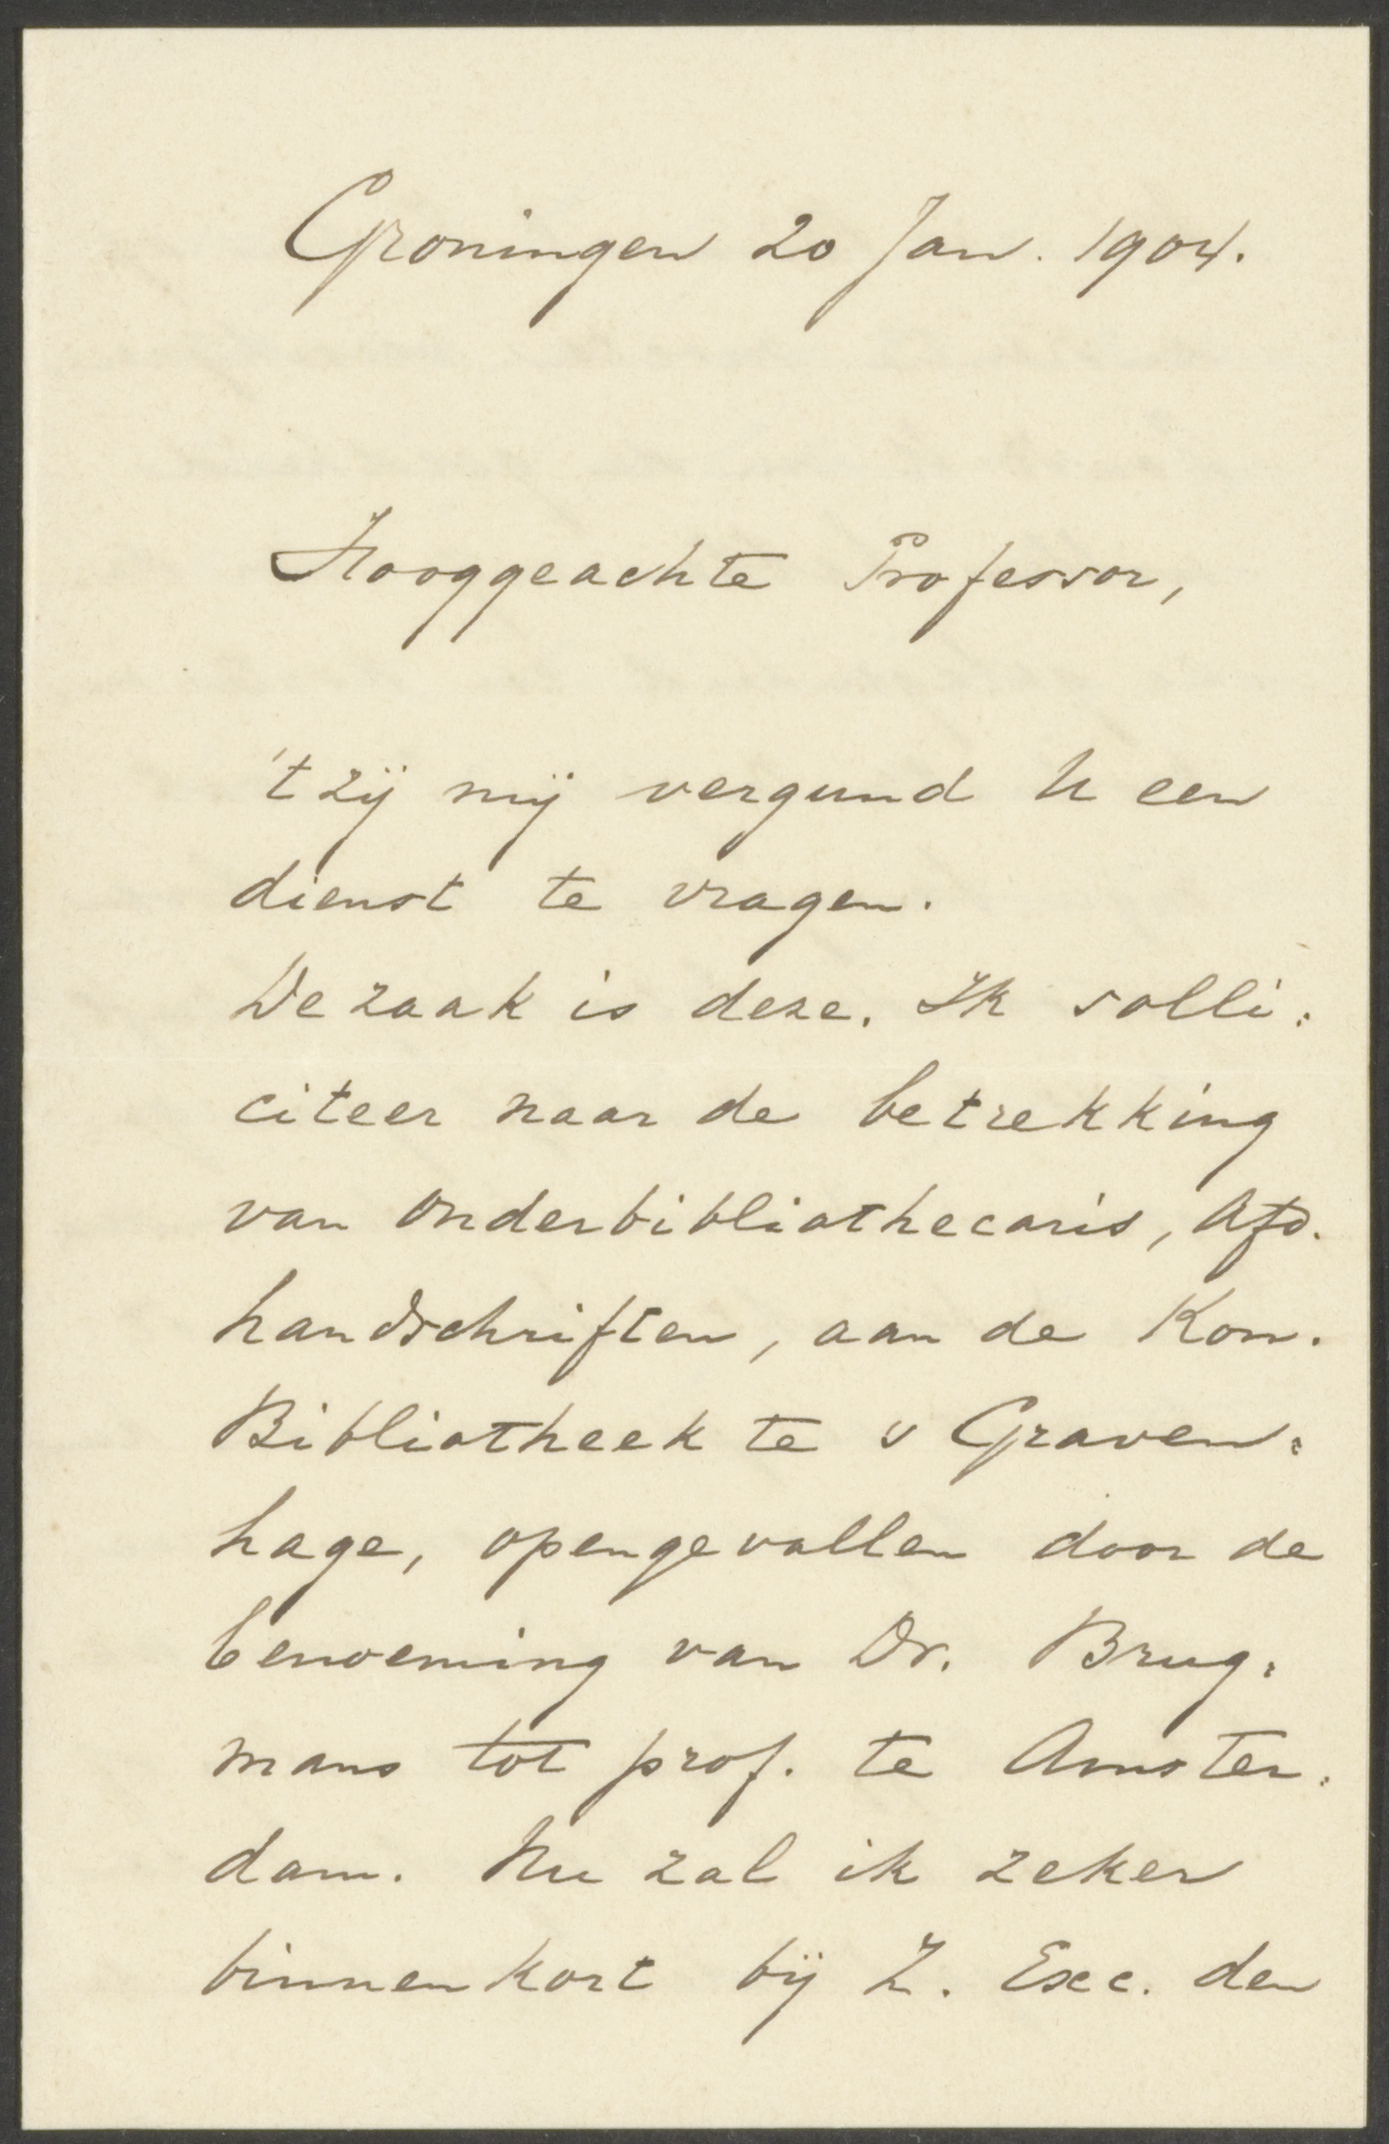 Groningen 20 Jan. 1904.
Hooggeachte Professor,
't zij mij vergund U een
dienst te vragen.
De zaak is deze. Ik solli:
citeer naar de betrekking
van onderbibliothecaris, Afd.
handschriften, aan de Kon.
Bibliotheek te s Graven:
hage, opengevallen door de
benoeming van Dr. Brug:
mans tot prof. te Amster:
dam. Nu zal ik zeker
binnenkort bij Z. Exc. den